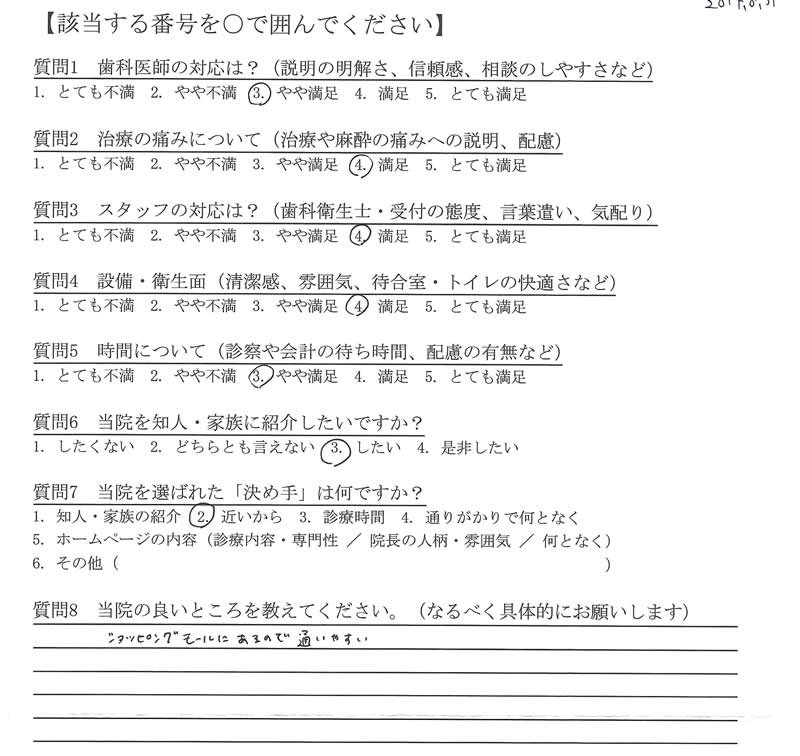 【該当する番号を○で囲んでください】
質問1　歯科医師の対応は？（説明の明解さ、信頼感、相談のしやすさなど）
1. とても不満 2. やや不満 3. やや満足 4. 満足 5. とても満足
質問2　治療の痛みについて（治療や麻酔の痛みへの説明、配慮）
1. とても不満 2. やや不満 3. やや満足 4. 満足 5. とても満足
質問3　スタッフの対応は？（歯科衛生士・受付の態度、言葉遣い、気配り）
1. とても不満 2. やや不満 3. やや満足 4. 満足 5. とても満足
質問4　設備・衛生面（清潔感、雰囲気、待合室・トイレの快適さなど）
1. とても不満 2. やや不満 3. やや満足 4. 満足 5. とても満足
質問5　時間について（診察や会計の待ち時間、配慮の有無など）
1. とても不満 2. やや不満 3. やや満足 4. 満足 5. とても満足
質問6　当院を知人・家族に紹介したいですか？
1. したくない 2. どちらとも言えない 3. したい 4. 是非したい
質問7　当院を選ばれた「決め手」は何ですか？
1. 知人・家族の紹介 2. 近いから 3. 診療時間 4. 通りがかりで何となく
5. ホームページの内容（診療内容・専門性 ／ 院長の人柄・雰囲気 ／ 何となく）
6. その他（　　　　　）
質問8　当院の良いところを教えてください。（なるべく具体的にお願いします）
ショッピングモールにあるので通いやすい